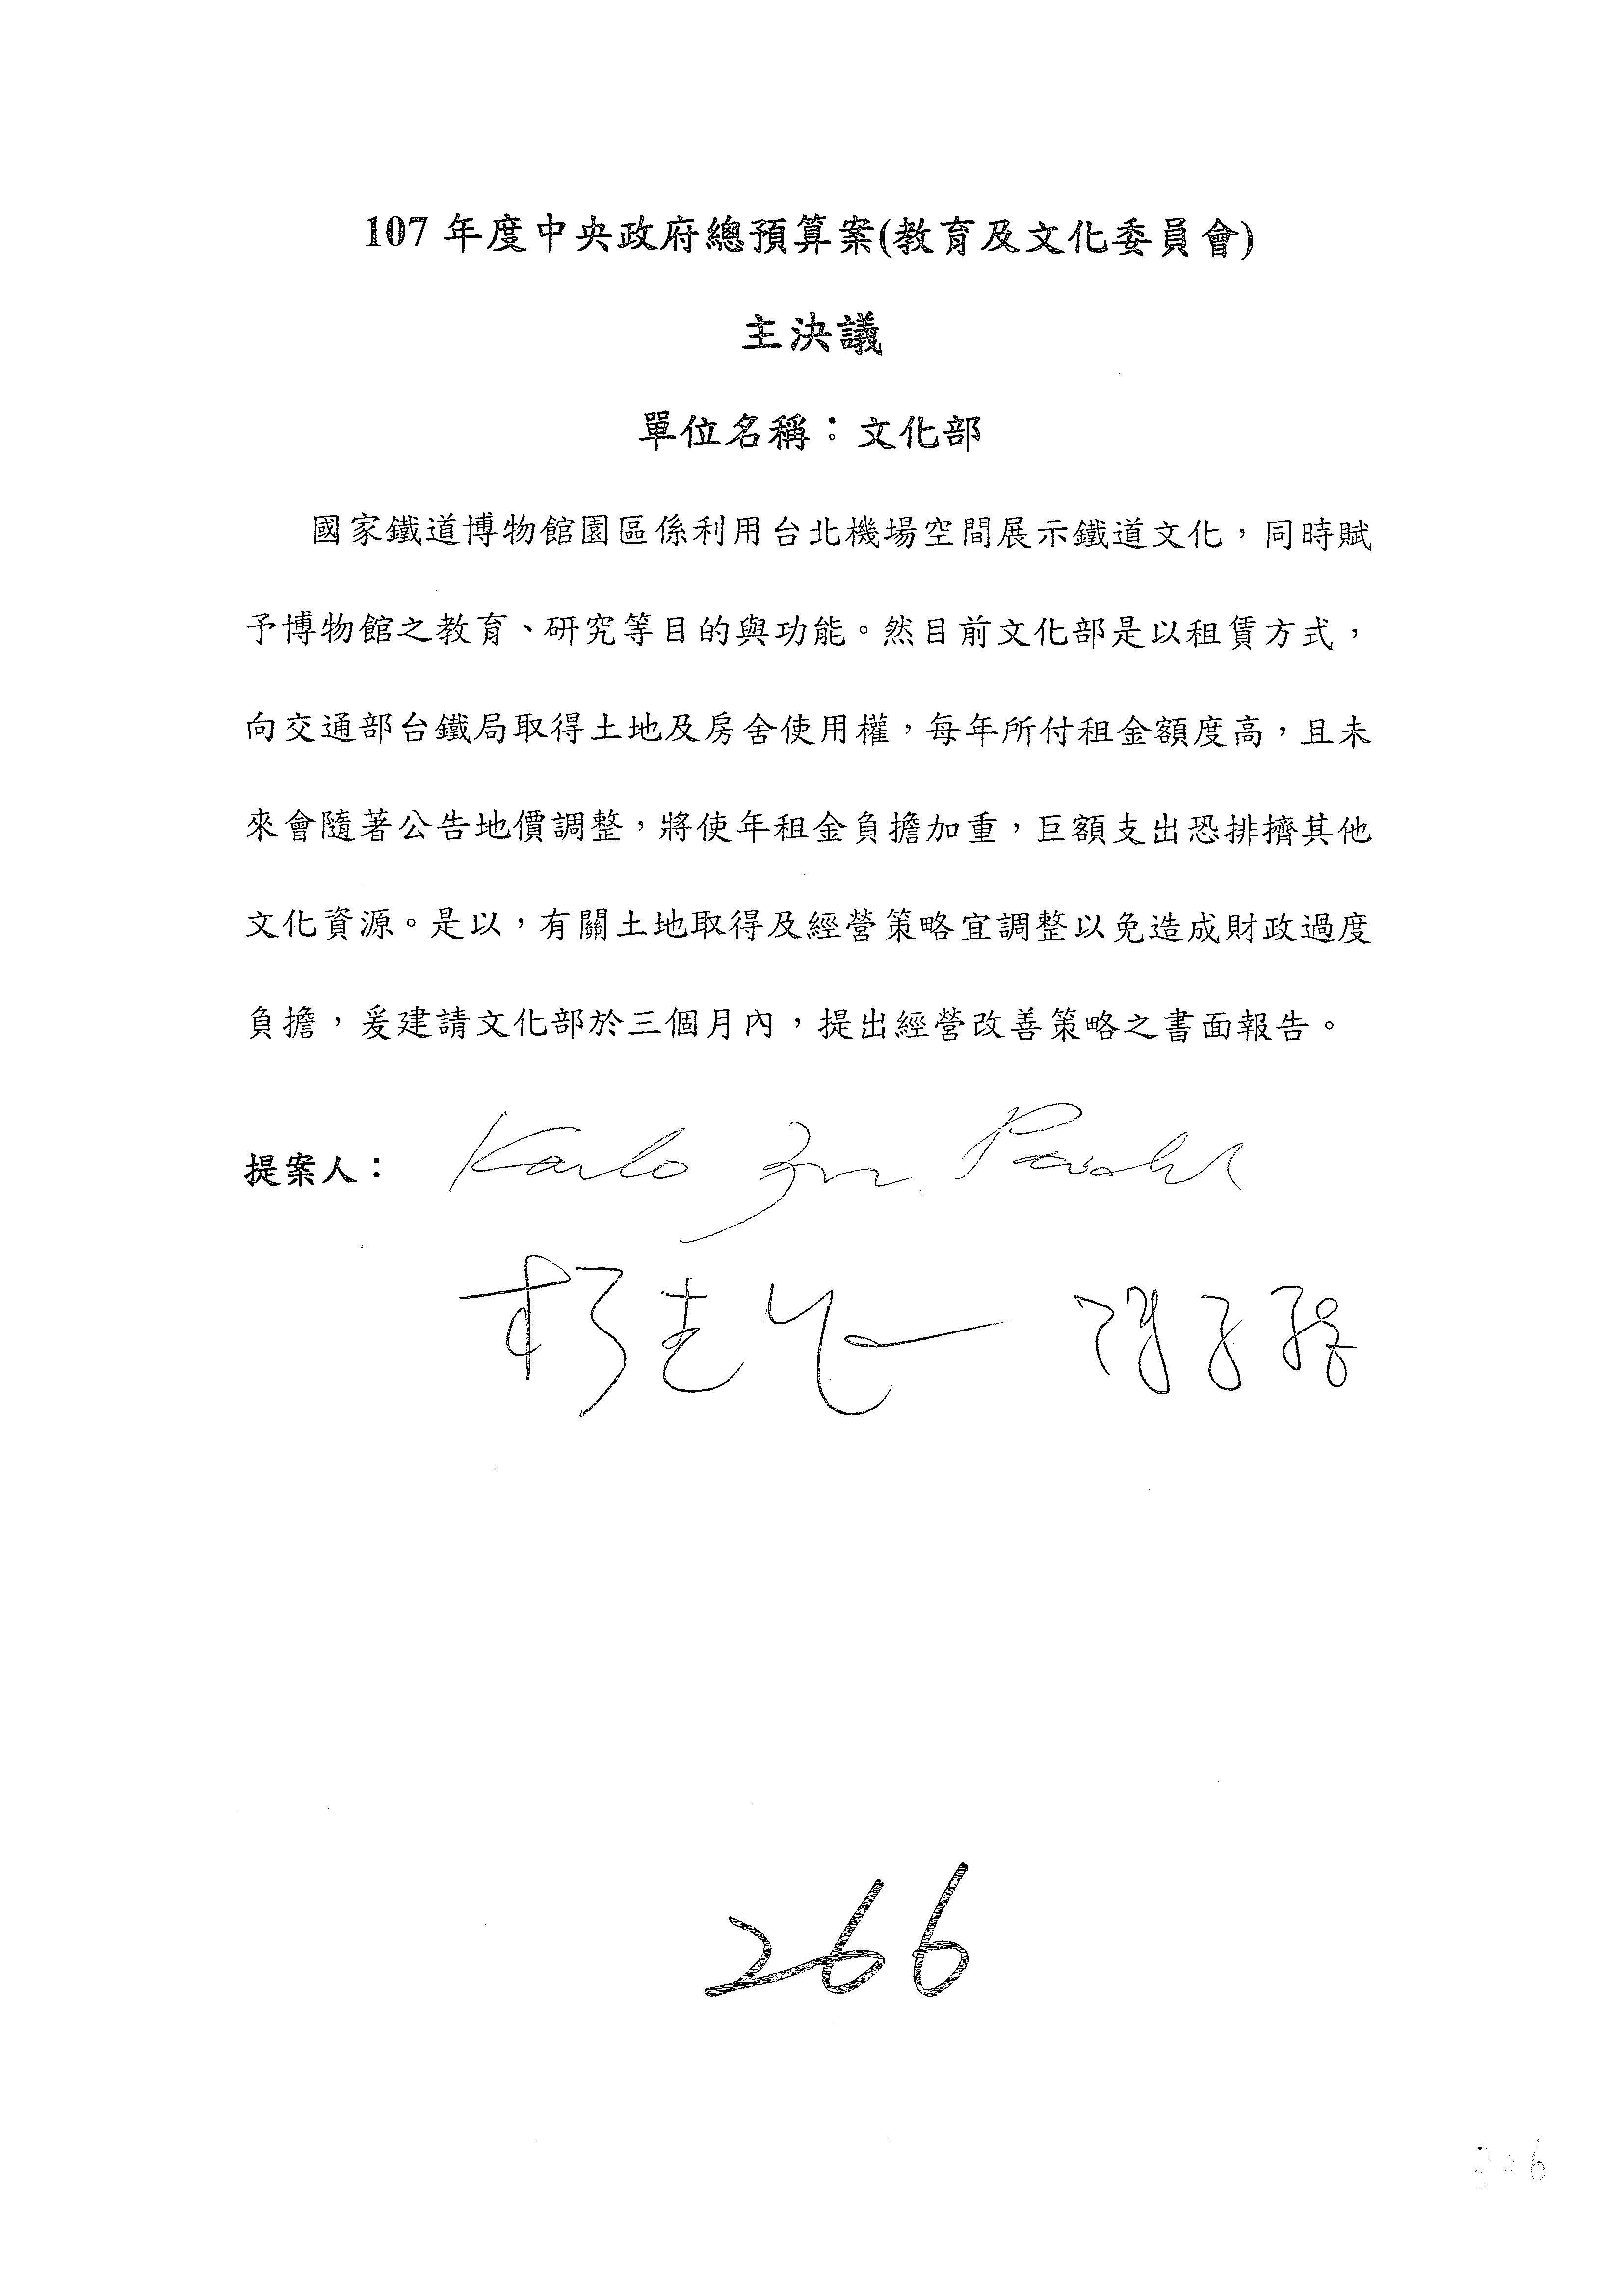 107 年度中央政府總預算案(教育及文化委員會)
主決議
單位名稱：文化部
國家鐵道博物館園區係利用台北機場空間展示鐵道文化，同時賦
予博物館之教育、研究等目的與功能。然目前文化部是以租賃方式，
向交通部台鐵局取得土地及房舍使用權，每年所付租金額度高，且未
來會隨著公告地價調整，將使年租金負擔加重，巨額支出恐排擠其他
文化資源。是以，有關土地取得及經營策略宜調整以免造成財政過度
負擔，爰建請文化部於三個月內，提出經營改善策略之書面報告。
提案人：
266